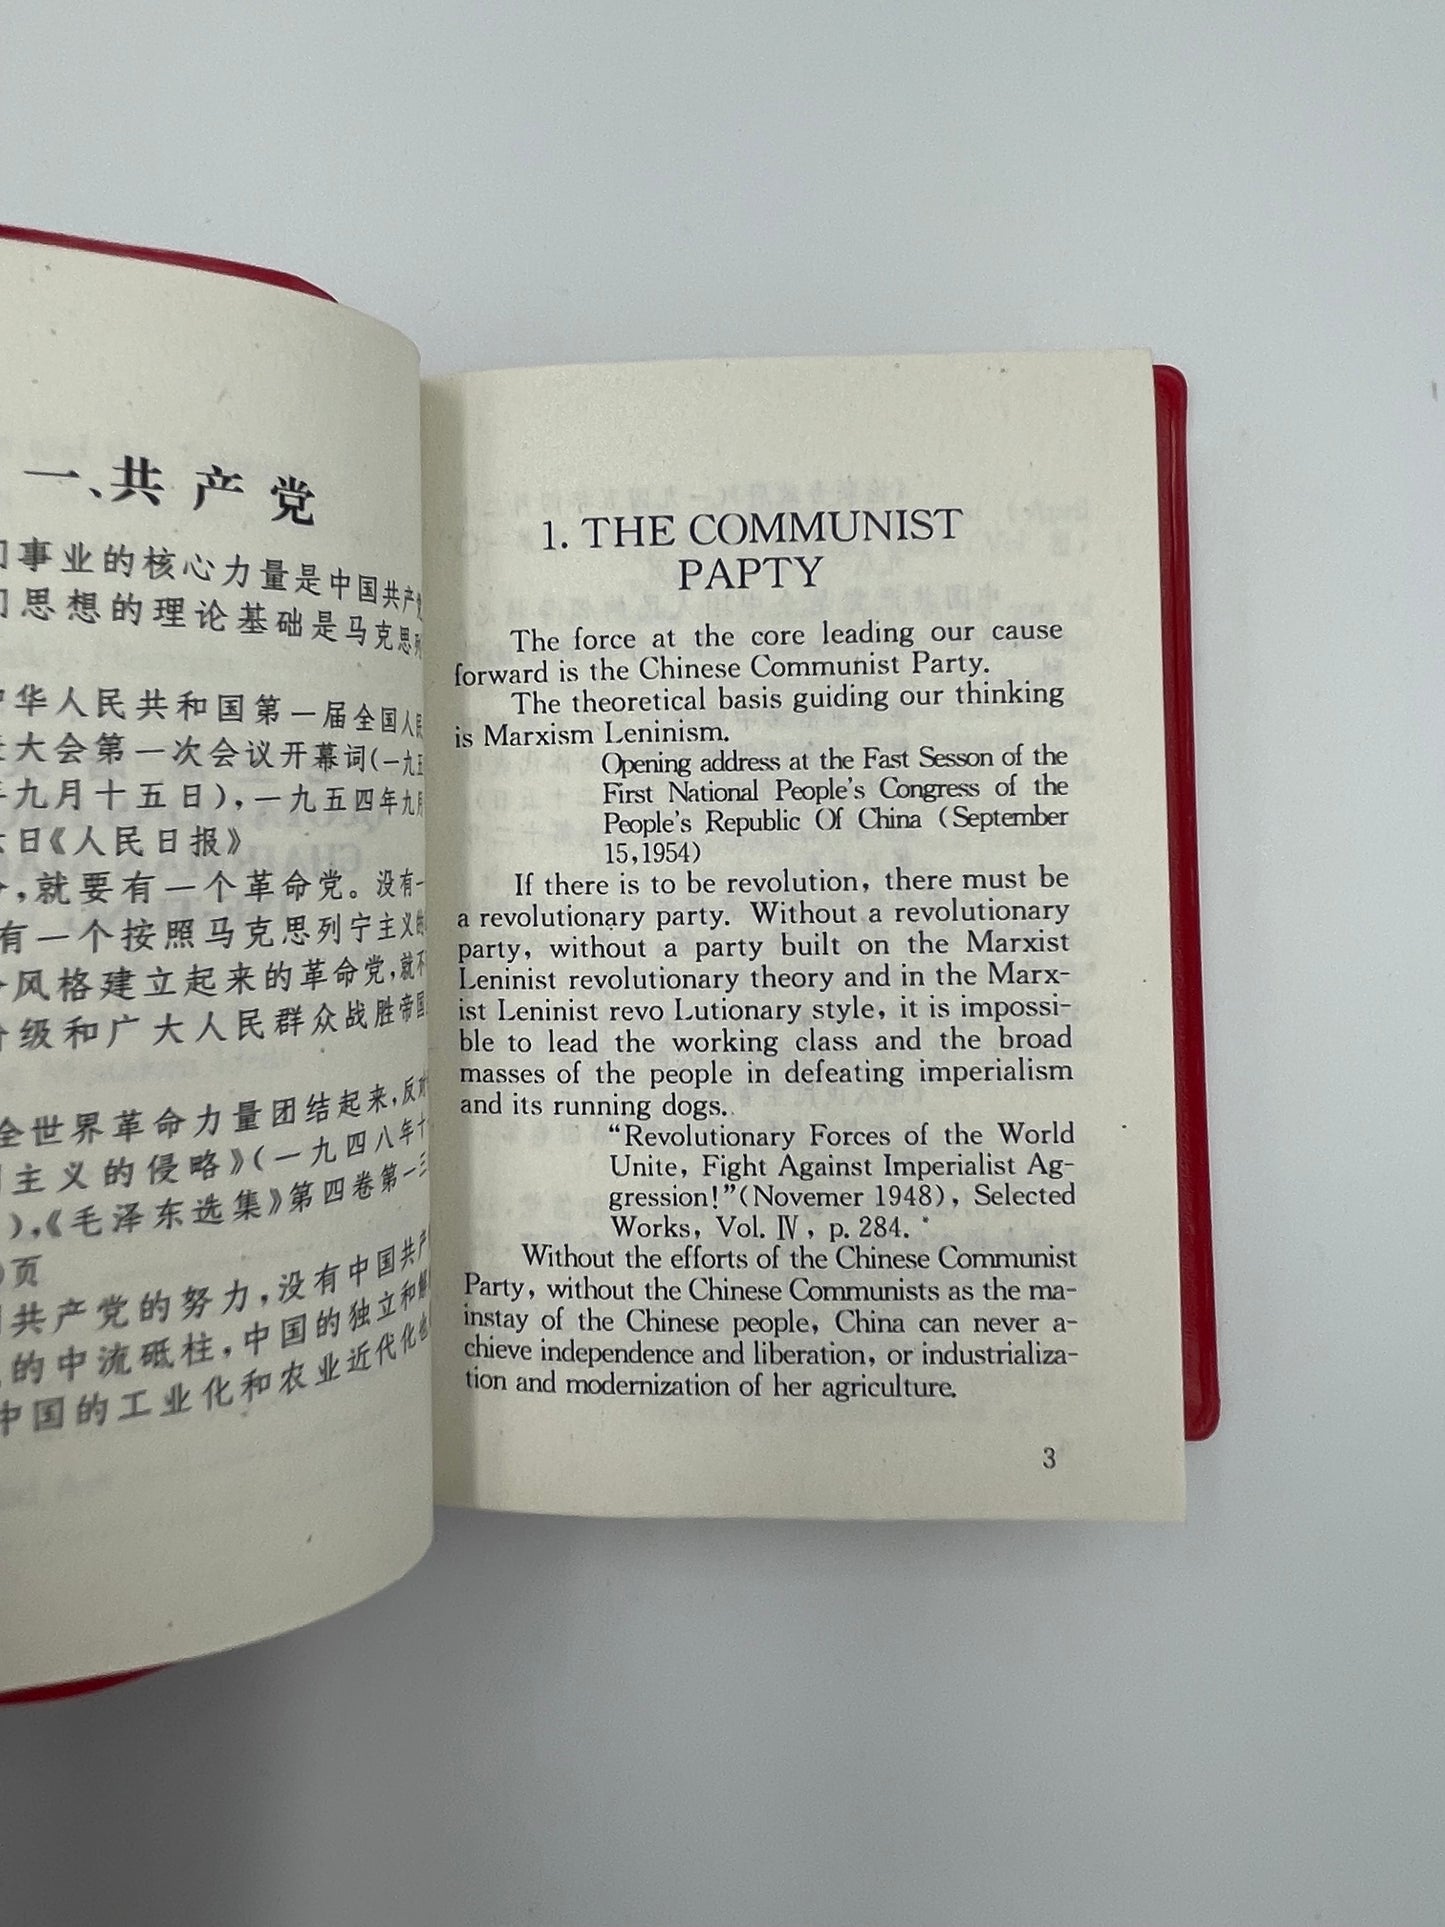 一、共产党
事业的核心力量是中国共产党
思想的理论基础是马克思列
华人民共和国第一届全国人民
大会第一次会议开幕词(一九五
年九月十五日),一九五四年九月
日《人民日报》
,就要有一个革命党。没有一
有一个按照马克思列宁主义的
风格建立起来的革命党,就不
级和广大人民群众战胜帝国
全世界革命力量团结起来,反对
主义的侵略》(一九四八年十
),《毛泽东选集》第四卷第一三
页
共产党的努力,没有中国共产
的中流砥柱,中国的独立和解
中国的工业化和农业近代化也
1. THE COMMUNIST
PAPTY
The force at the core leading our cause
forward is the Chinese Communist Party.
The theoretical basis guiding our thinking
is Marxism Leninism.
Opening address at the Fast Sesson of the
First National People's Congress of the
People's Republic Of China (September
15,1954)
If there is to be revolution, there must be
a revolutionary party. Without a revolutionary
party, without a party built on the Marxist
Leninist revolutionary theory and in the Marx-
ist Leninist revo Lutionary style, it is impossi-
ble to lead the working class and the broad
masses of the people in defeating imperialism
and its running dogs.
"Revolutionary Forces of the World
Unite, Fight Against Imperialist Ag-
gression!"(Novemer 1948), Selected
Works, Vol. Ⅳ, p. 284.
Without the efforts of the Chinese Communist
Party, without the Chinese Communists as the ma-
instay of the Chinese people, China can never a-
chieve independence and liberation, or industrializa-
tion and modernization of her agriculture.
3